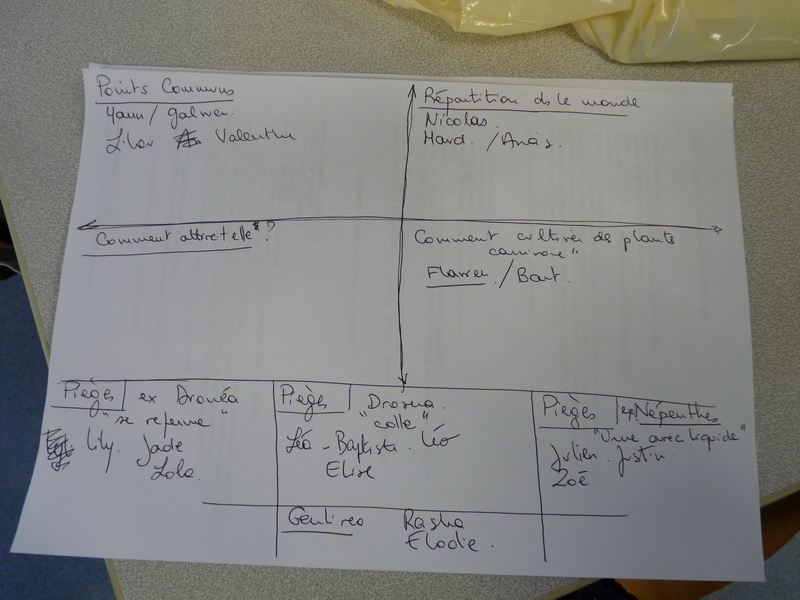 Points Communs
Yann / Galwen.
Valentin
Répartition ds le monde
Nicolas
/ Anaïs.
Comment attire t elle ?
Comment cultiver des plants
carnivore"
/ Bart.
Pièges ex Dionéa
"se referme"
Lily. Jade
Lola.
Pièges Drosera
"colle"
Léo - Baptiste. Léo
Elise
Pièges ex Népenthes
"Urne avec liquide"
Julien. Justin.
Zoé
Rasha
Elodie.